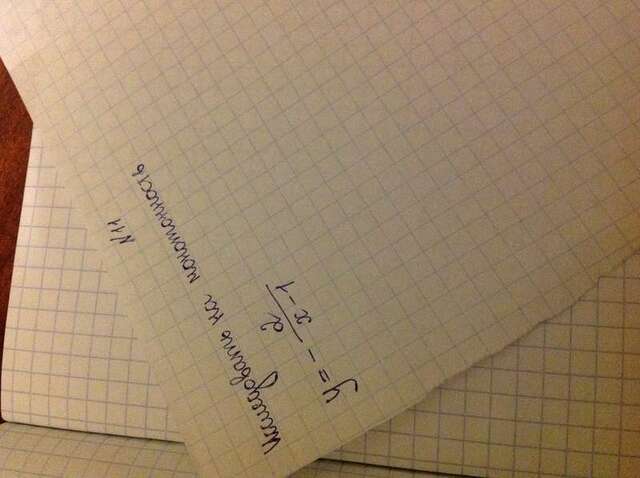 N11
Исследовать на монотонность
y = - 2/(x-1)